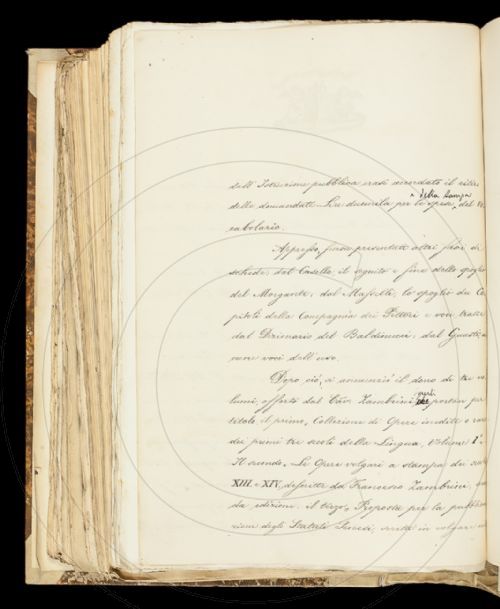 dell'Istruzione pubblica erasi accordato il
delle domandate Lire duemila per le spese della stampa del Vo
cabolario.
Appresso, furon presentate altri spogli di
schede; dal Casella il seguito e fine dello spoglio
del Morgante; dal Masselli, lo spoglio dei Ca
pitoli della Compagnia dei Pittori e voci tratte
dal Dizionario del Baldinucci; dal Guasti, a
voci dell'uso.
Dopo ciò, si annunziò il dono di tre vo
lumi, offerto dal Cav. Zambrini portan per
titolo il primo, Collezione di Opere inedite o rare
dei primi tre secoli della Lingua, Volume 1.°
Il secondo, Le Opere volgari a stampa dei secoli
XIII e XIV, descritte da Francesco Zambrini,
da edizione; il terzo, Proposta per la pubblica
zione degli Statuti Senesi, scritti in volgare